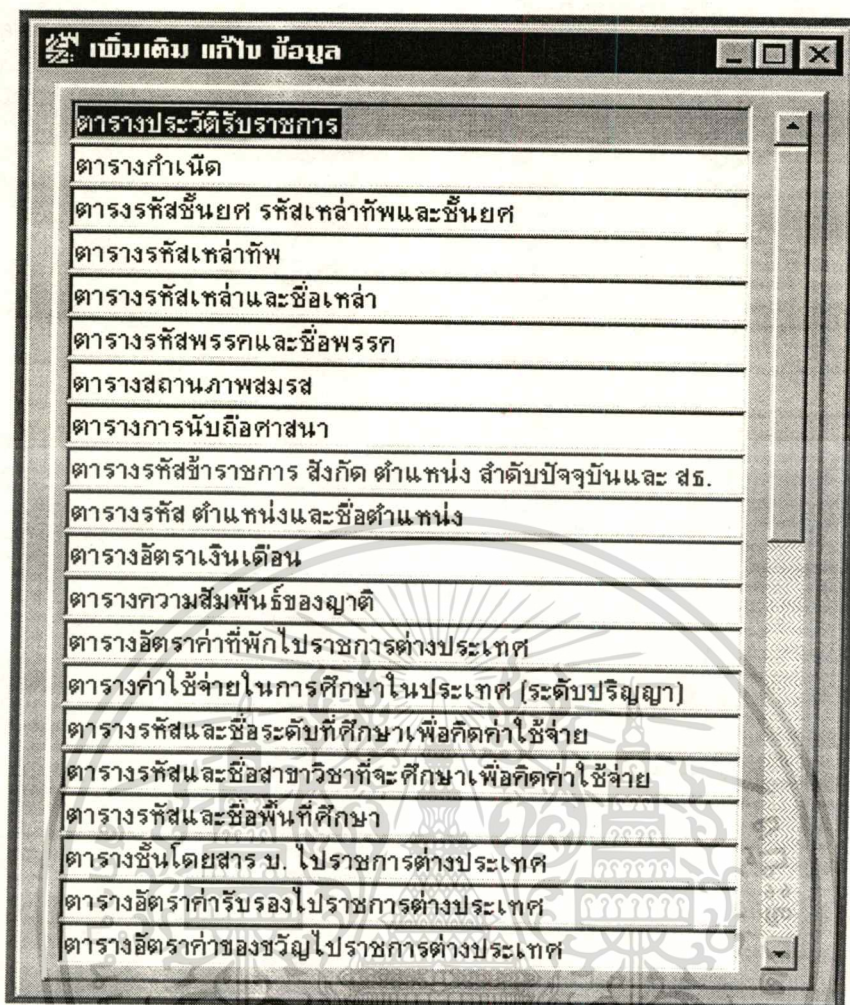 เพิ่มเติม แก้ไข ข้อมูล
ตารางประวัติรับราชการ
ตารางกำเนิด
ตารงรหัสชั้นยศ รหัสเหล่าทัพและชั้นยศ
ตารางรหัสเหล่าทัพ
ตารางรหัสเหล่าและชื่อเหล่า
ตารางรหัสพรรคและชื่อพรรค
ตารางสถานภาพสมรส
ตารางการนับถือศาสนา
ตารางรหัสข้าราชการ สังกัด ตำแหน่ง ลำดับปัจจุบันและ สธ.
ตารางรหัส ตำแหน่งและชื่อตำแหน่ง
ตารางอัตราเงินเดือน
ตารางความสัมพันธ์ของญาติ
ตารางอัตราค่าที่พักไปราชการต่างประเทศ
ตารางค่าใช้จ่ายในการศึกษาในประเทศ (ระดับปริญญา)
ตารางรหัสและชื่อระดับที่ศึกษาเพื่อคิดค่าใช้จ่าย
ตารางรหัสและชื่อสาขาวิชาที่จะศึกษาเพื่อคิดค่าใช้จ่าย
ตารางรหัสและชื่อพื้นที่ศึกษา
ตารางชั้นโดยสาร บ. ไปราชการต่างประเทศ
ตารางอัตราค่ารับรองไปราชการต่างประเทศ
ตารางอัตราค่าของขวัญไปราชการต่างประเทศ